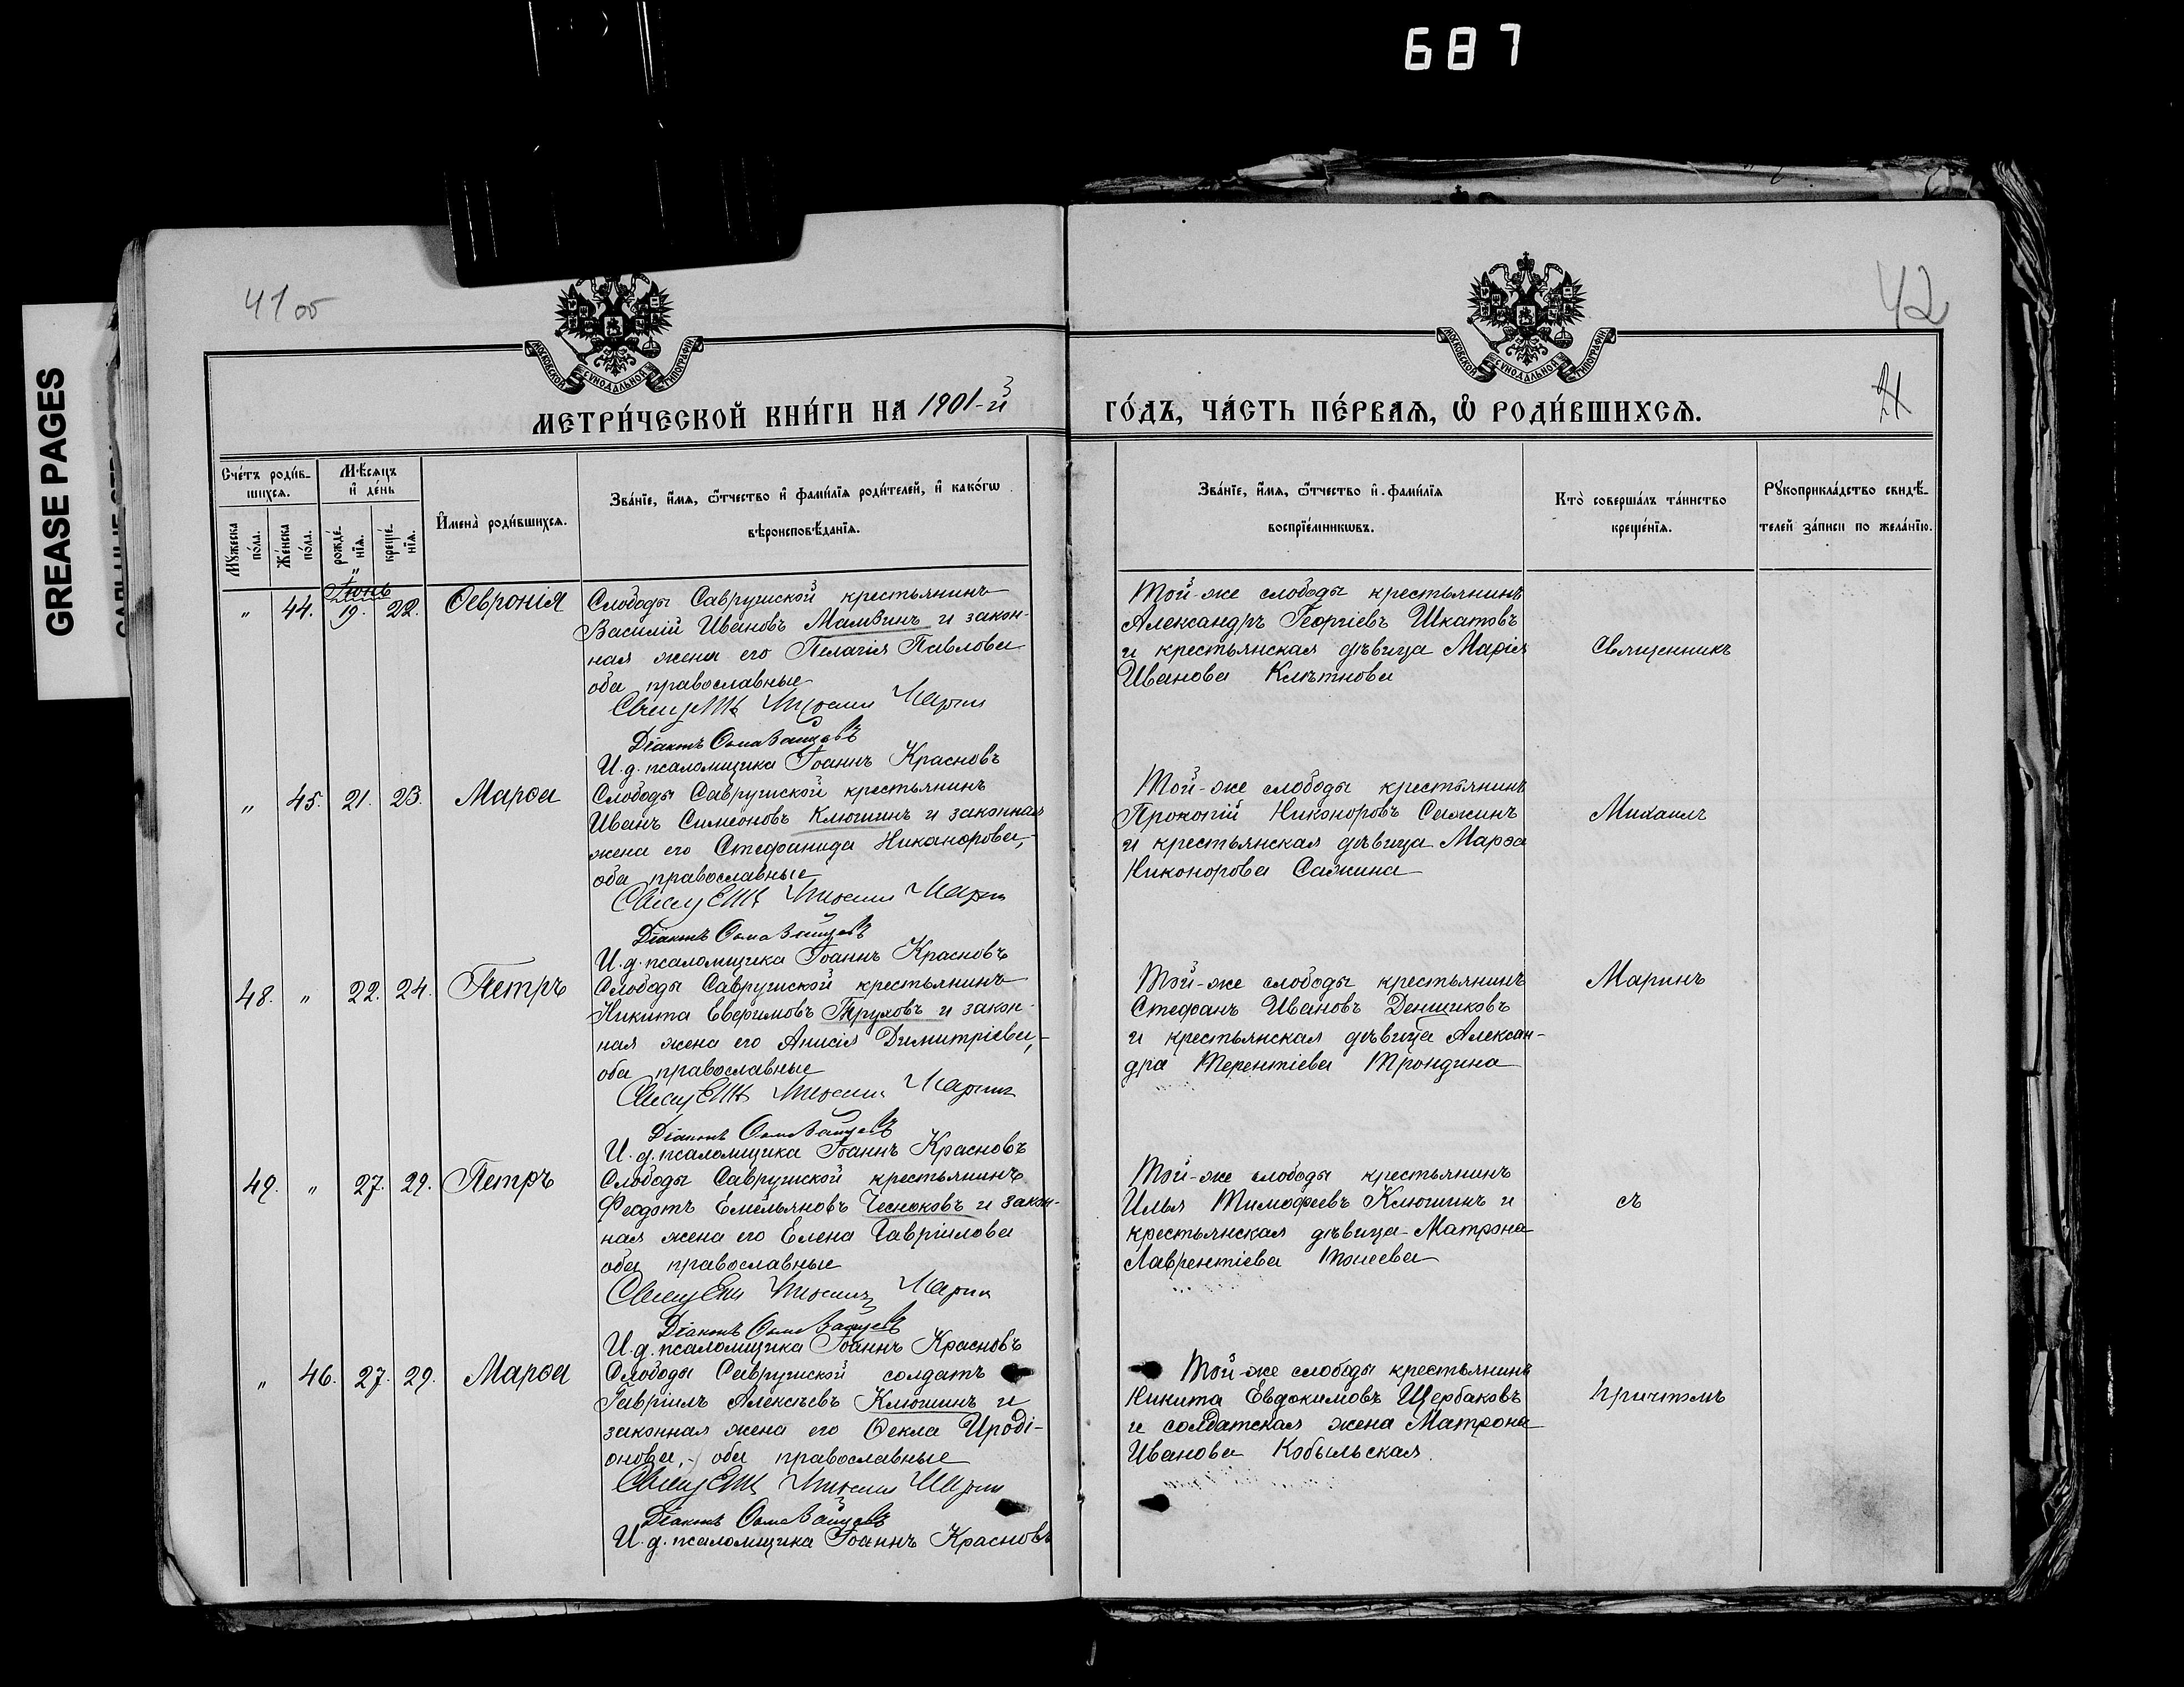 687
GREASE PAGES
41 об
42
21
МОСКОВСКОЙ СУНОДАЛЬНОЙ ТИПОГРАФІИ
МОСКОВСКОЙ СУНОДАЛЬНОЙ ТИПОГРАФІИ
МЕТРИ́ЧЕСКОЙ КНИ́ГИ НА 1901-й
ГО́ДЪ, ЧА́СТЬ ПЕ́РВАѦ, Ѽ РОДИ́ВШИХСѦ.
Сче́тъ роди́в-
шихсѧ.
Мѣ́сѧцъ
и҆ де́нь
Мꙋ́жеска по́ла.
Же́нска по́ла.
рожде́-нїѧ.
креще́-нїѧ.
И҆мена̀ роди́вшихсѧ.
Зва́нїе, и҆́мѧ, ѻ҆́тчество и҆ фами́лїѧ роди́телей, и҆ како́гѡ
вѣроисповѣ́данїѧ.
Зва́нїе, и҆́мѧ, ѻ҆́тчество и҆ фами́лїѧ
воспрїе́мникѡвъ.
Кто̀ соверша́лъ та́инство
креще́нїѧ.
Рꙋкоприкла́дство свидѣ́-
телей за́писи по жела́нїю.
Іюнь
" 44. 19. 22. Ѳевронія
Слободы Саврушской крестьянинъ
Василій Ивановъ Мамзинъ и закон-
ная жена его Пелагія Павлова
оба православные
Діаконъ Ѳома Зайцевъ
И. д. псаломщика Іоаннъ Красновъ
Той-же слободы крестьянинъ
Александръ Георгіевъ Шкатовъ
и крестьянская дѣвица Марія
Иванова Клѣтнова
Священникъ
" 45. 21. 23. Марѳа
Слободы Саврушской крестьянинъ
Иванъ Симеоновъ Клюшинъ и законная
жена его Стефанида Никанорова,
оба православные
Діаконъ Ѳома Зайцевъ
И. д. псаломщика Іоаннъ Красновъ
Той-же слободы крестьянинъ
Прокопій Никоноровъ Сажинъ
и крестьянская дѣвица Марѳа
Никонорова Сажина
Михаилъ
48. " 22. 24. Петръ
Слободы Саврушской крестьянинъ
Никита Евфимовъ Труховъ и закон-
ная жена его Анисія Димитріева,
оба православные
Діаконъ Ѳома Зайцевъ
И. д. псаломщика Іоаннъ Красновъ
Той-же слободы крестьянинъ
Стефанъ Ивановъ Денщиковъ
и крестьянская дѣвица Алексан-
дра Терентіева Трондина
Маринъ
49. " 27. 29. Петръ
Слободы Саврушской крестьянинъ
Феодотъ Емельяновъ Чесноковъ и закон-
ная жена его Елена Гавріилова
оба православные
Діаконъ Ѳома Зайцевъ
И. д. псаломщика Іоаннъ Красновъ
Той-же слободы крестьянинъ
Илья Тимофеевъ Клюшинъ и
крестьянская дѣвица Матрона
Лаврентіева
съ
" 46. 27. 29. Марѳа
Слободы Саврушской солдатъ
Гавріилъ Алексѣевъ Клюшинъ и
законная жена его Ѳекла Иродi-
онова, оба православные
Діаконъ Ѳома Зайцевъ
И. д. псаломщика Іоаннъ Красновъ
Той-же слободы крестьянинъ
Никита Евдокимовъ Щербаковъ
и солдатская жена Матрона
Иванова Кобыльская.
причтомъ